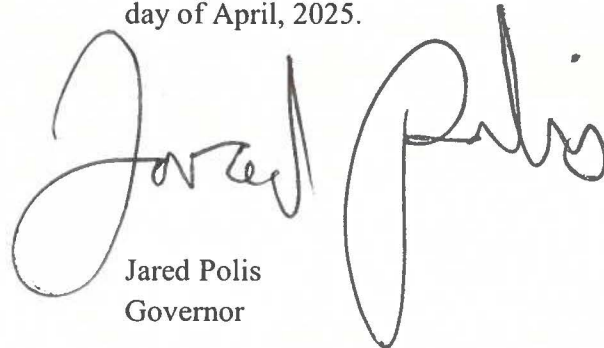 day of April, 2025.
Jared Polis
Jared Polis
Governor